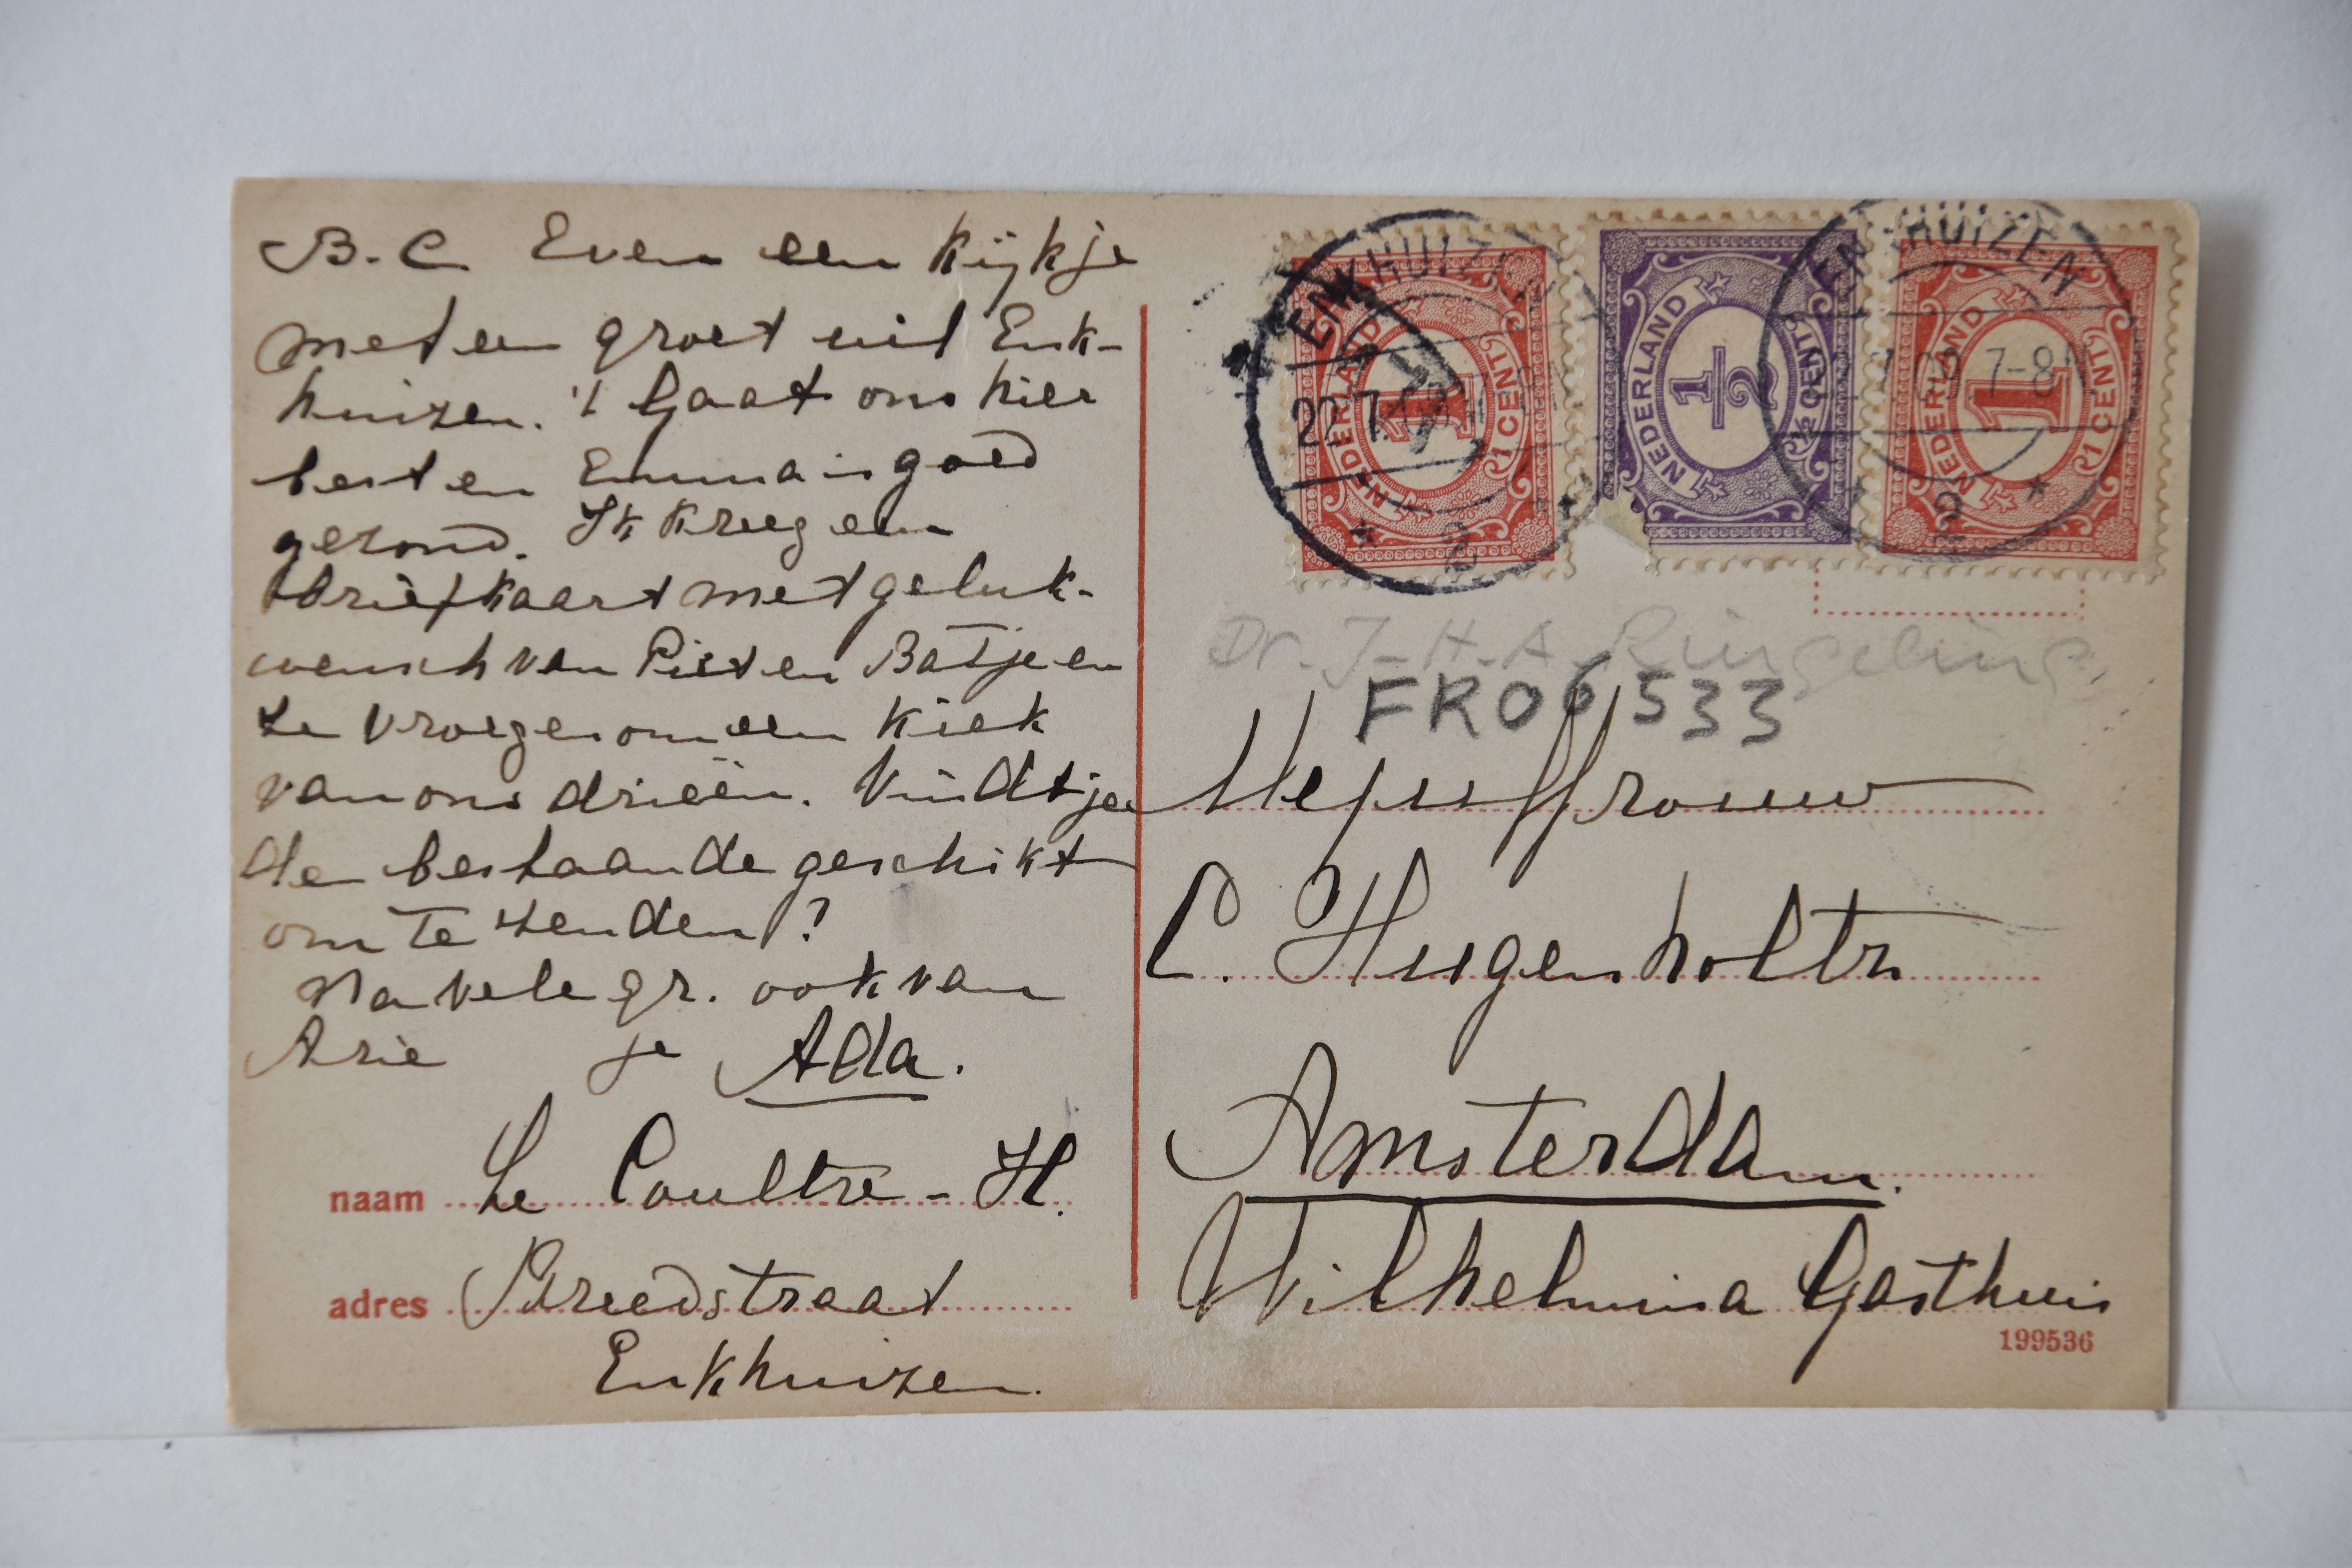 B. C. Even een kijkje
met een groet uit Enk-
huizen. 't Gaat ons hier
best en Emma is goed
gezond. Ik kreeg een
briefkaart met geluk-
wensch van Piet en Batje en
ze vroegen om een kiek
van ons drieën. Vindt je
de bestaande geschikt
om te zenden?
Na vele gr. ook van
Arie je Ada.
naam Le Coultre - H.
adres Breedstraat
Enkhuizen.
ENKHUIZEN
NEDERLAND 1 1 CENT
NEDERLAND ½ ½ CENT
ENKHUIZEN
7-8
2
NEDERLAND 1 1 CENT
Dr. J-H-A Ringeling
FR06533
Mejuffrouw
C. Hugenholtz
Amsterdam.
Wilhelmina Gasthuis
199536